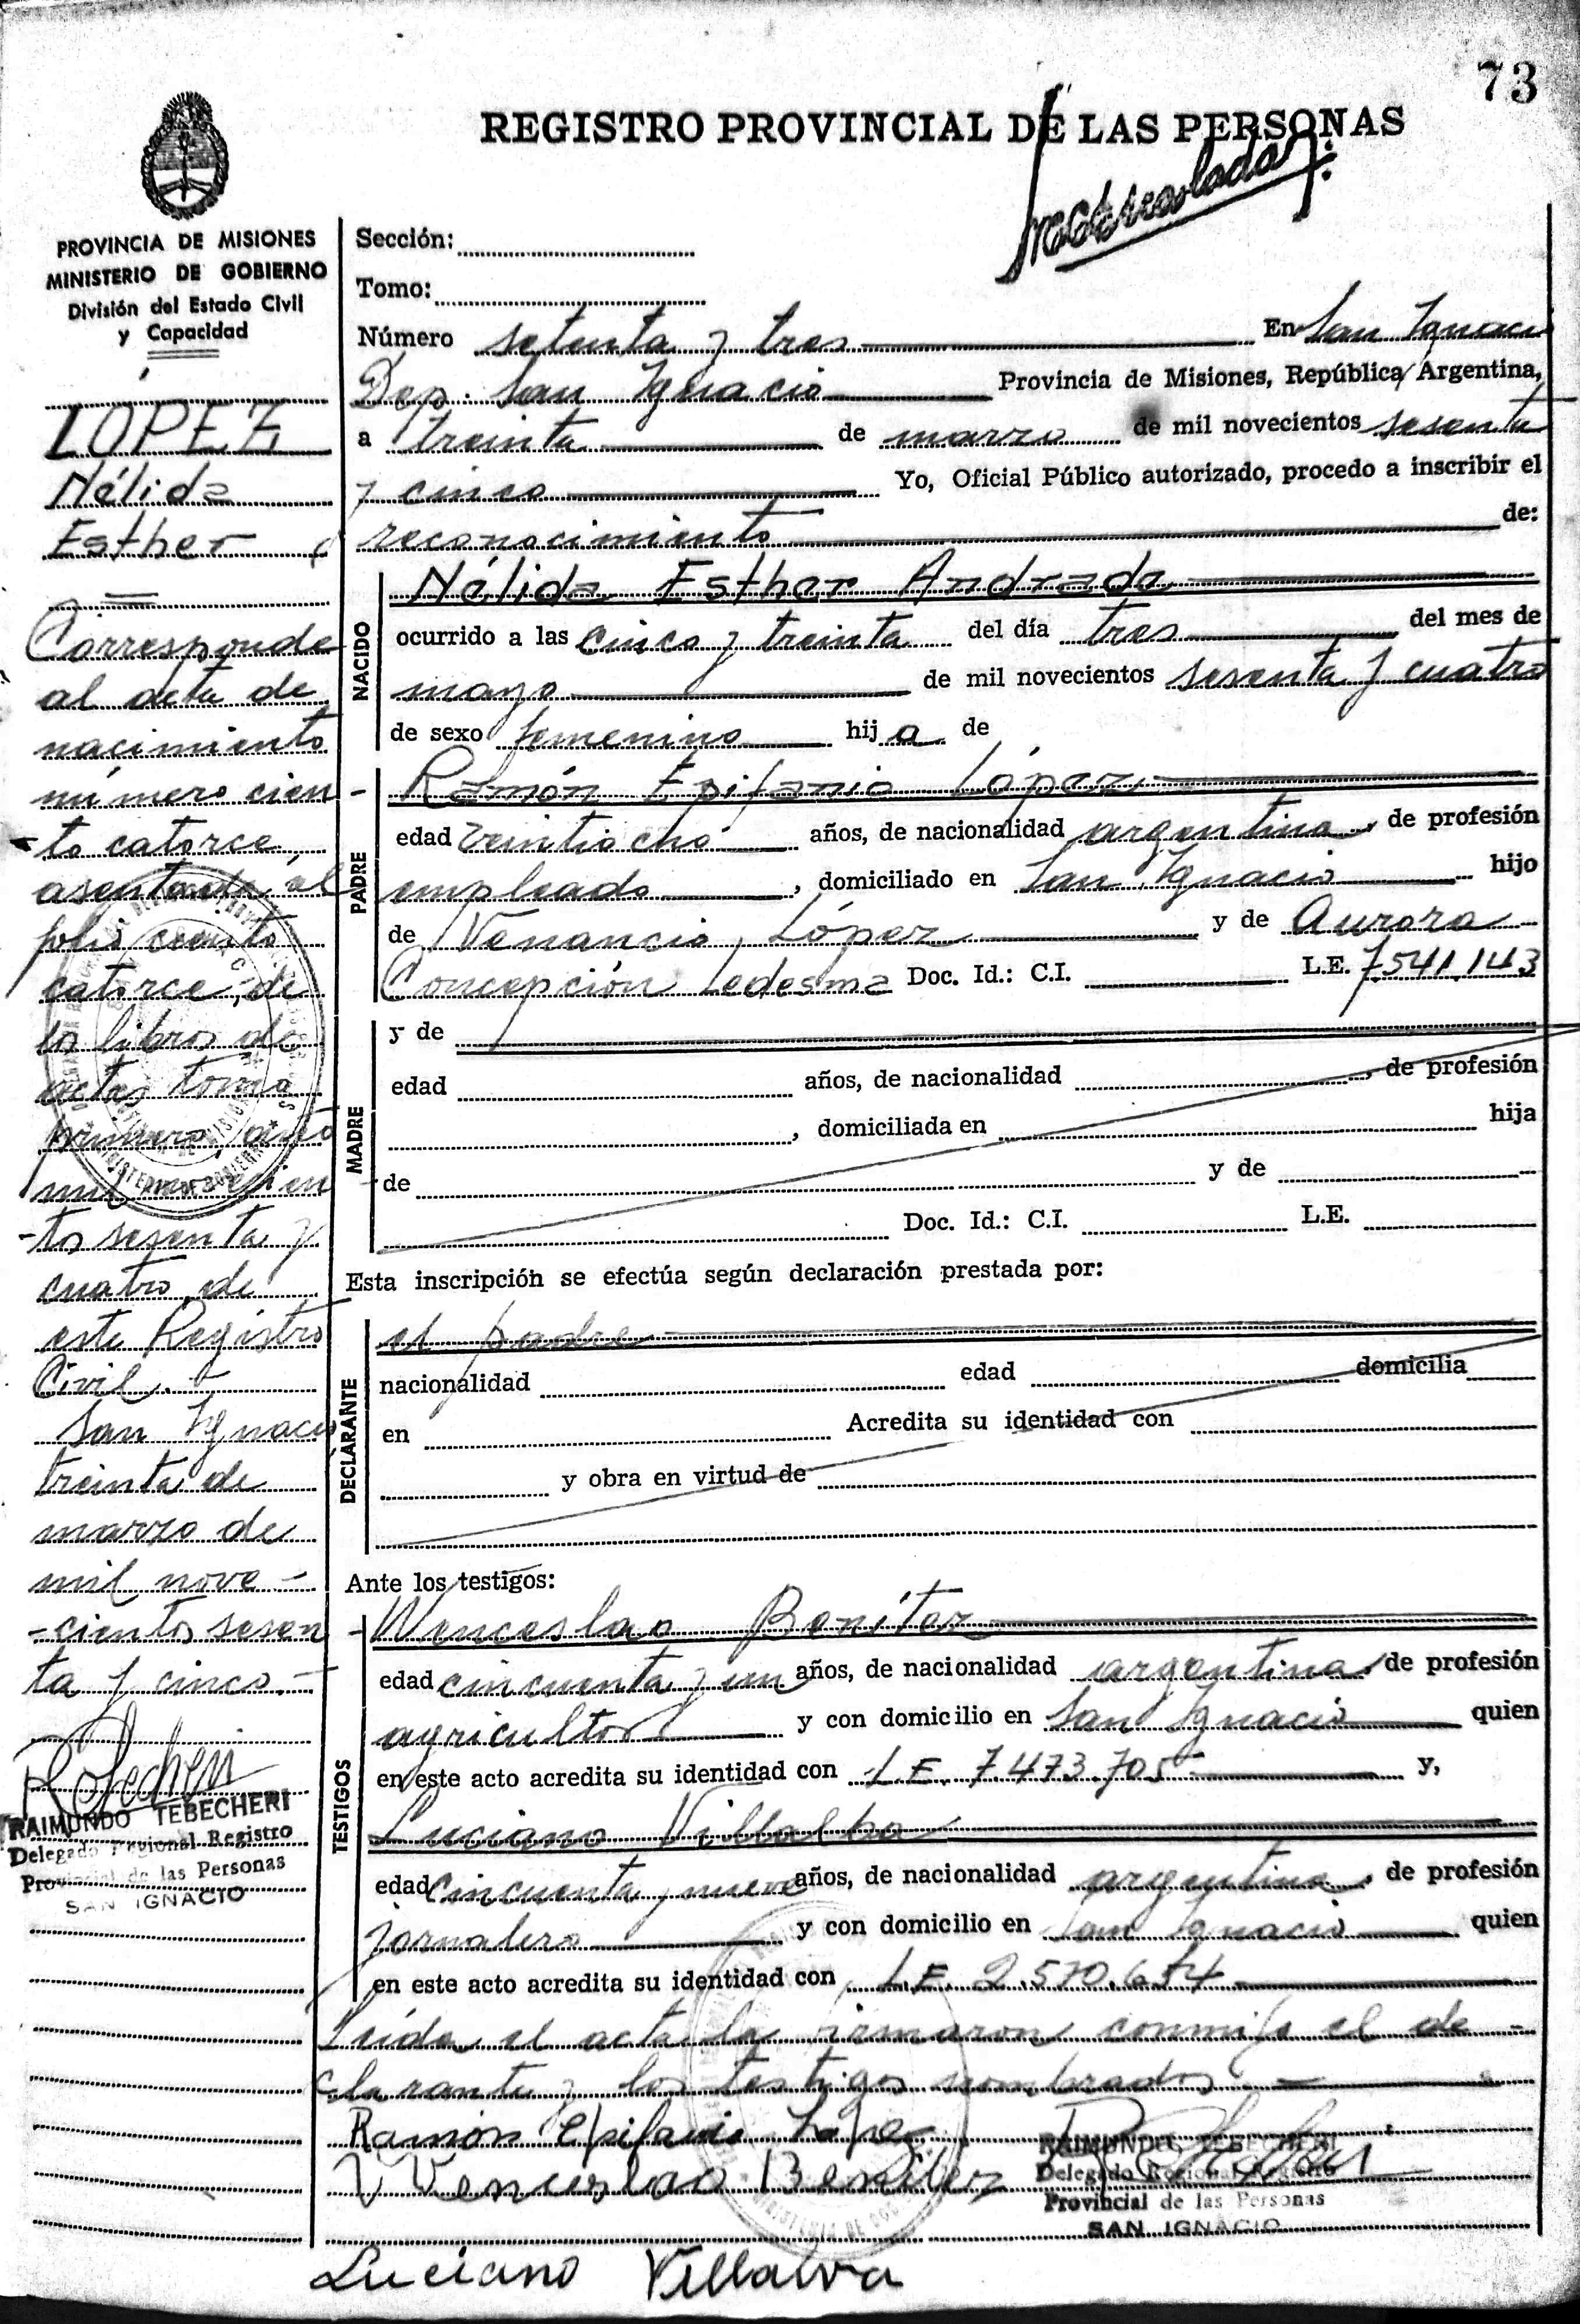 73
REGISTRO PROVINCIAL DE LAS PERSONAS
PROVINCIA DE MISIONES
MINISTERIO DE GOBIERNO
División del Estado Civil
y Capacidad
LOPEZ
Nélida
Esther
Corresponde
al acta de
nacimiento
número cien-
-to catorce,
asentada al
folio ciento
catorce, de
los libros de
actas tomo
primero, año
mil novecien
-tos sesenta y
cuatro, de
este Registro
Civil.
San Ignacio
treinta de
marzo de
mil nove-
-cientos sesen
ta y cinco.-
RAIMUNDO TEBECHERI
Delegado Regional Registro
Provincial de las Personas
SAN IGNACIO
Sección:
Tomo:
Número setenta y tres En San Ignacio
Dep. San Ignacio Provincia de Misiones, República Argentina,
a treinta de marzo de mil novecientos sesenta
y cinco Yo, Oficial Público autorizado, procedo a inscribir el
reconocimiento de:
NACIDO
Nélida Esther Andrade
ocurrido a las cinco y treinta del día tres del mes de
mayo de mil novecientos sesenta y cuatro
de sexo femenino hija de
PADRE
Ramón Epifanio López
edad veintiocho años, de nacionalidad argentina, de profesión
empleado, domiciliado en San Ignacio hijo
de Venancio López y de Aurora
Concepción Ledesma Doc. Id.: C.I. L.E. 7541.143
MADRE
y de
edad años, de nacionalidad , de profesión
, domiciliada en hija
de y de
Doc. Id.: C.I. L.E.
Esta inscripción se efectúa según declaración prestada por:
DECLARANTE
el padre
nacionalidad edad domicilia
en Acredita su identidad con
y obra en virtud de
Ante los testigos:
TESTIGOS
Wenceslao Benítez
edad cincuenta y un años, de nacionalidad argentina, de profesión
agricultor y con domicilio en San Ignacio quien
en este acto acredita su identidad con L.E. 7.473.705 y,
Luciano Villalba
edad cincuenta y nueve años, de nacionalidad argentina, de profesión
jornalero y con domicilio en San Ignacio quien
en este acto acredita su identidad con L.E. 2.570.654
Leída el acta la firmaron conmigo el de-
clarante y los testigos nombrados.-
Ramón Epifanio López
Wenceslao Benitez
RAIMUNDO TEBECHERI
Delegado Regional Registro
Provincial de las Personas
SAN IGNACIO
Luciano Villalva